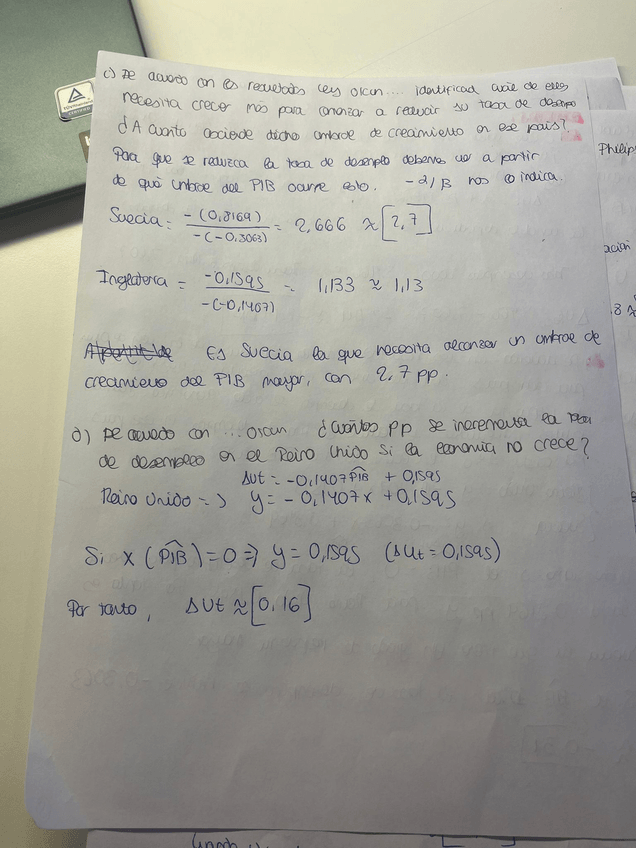 c) De acuerdo con los resultados ley okun.... identificad cuál de ellos
necesita crecer más para comenzar a reducir su tasa de desempleo
¿A cuánto asciende dicho umbral de crecimiento en ese país?
Para que se reduzca la tasa de desempleo debemos ver a partir
de qué umbral del PIB ocurre esto. -α/β nos lo indica.
Suecia = -(0,8169) / -(-0,3063) = 2,666 ≈ [2,7]
Inglaterra = -0,1595 / -(-0,1407) = 1,133 ≈ 1,13
Es Suecia la que necesita alcanzar un umbral de
crecimiento del PIB mayor, con 2,7 pp.
d) De acuerdo con ... okun ¿cuántos pp se incrementa la tasa
de desempleo en el Reino Unido si la economía no crece?
ΔUt = -0,1407 PIB + 0,1595
Reino Unido => y = -0,1407x + 0,1595
Si x (PIB) = 0 => y = 0,1595 (ΔUt = 0,1595)
Por tanto, ΔUt ≈ [0,16]
Philip
ación